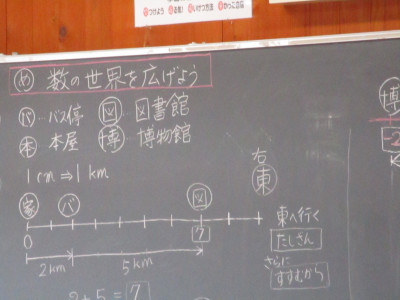 め 数の世界を広げよう
バ…バス停 図…図書館
本…本屋 博…博物館
1cm⇒1km
右
東
家 バ 図
0 7
2km 5km
東へ行く
たしざん
さらに
すすむから
2+5=7
博
-2